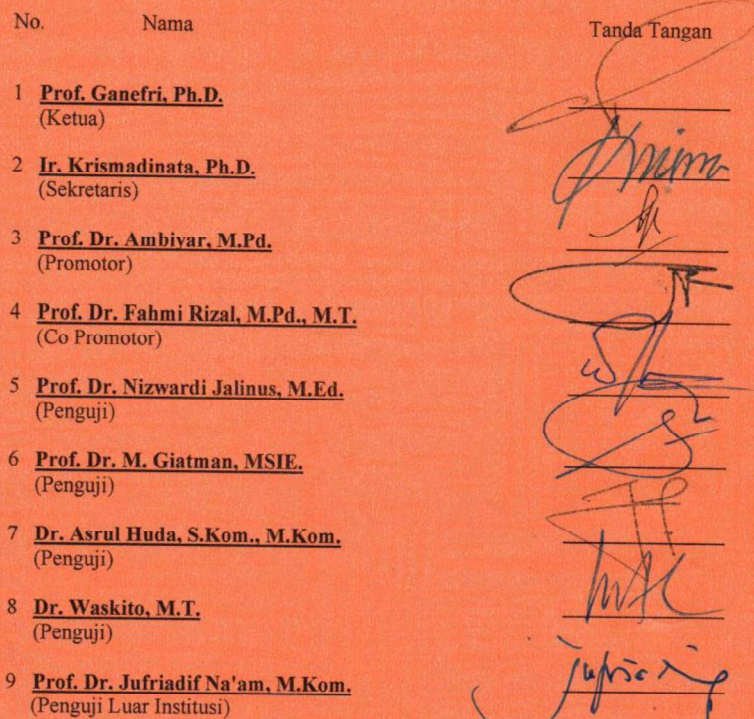 No. Nama Tanda Tangan
1 Prof. Ganefri, Ph.D.
(Ketua)
2 Ir. Krismadinata, Ph.D.
(Sekretaris)
3 Prof. Dr. Ambiyar, M.Pd.
(Promotor)
4 Prof. Dr. Fahmi Rizal, M.Pd., M.T.
(Co Promotor)
5 Prof. Dr. Nizwardi Jalinus, M.Ed.
(Penguji)
6 Prof. Dr. M. Giatman, MSIE.
(Penguji)
7 Dr. Asrul Huda, S.Kom., M.Kom.
(Penguji)
8 Dr. Waskito, M.T.
(Penguji)
9 Prof. Dr. Jufriadif Na'am, M.Kom.
(Penguji Luar Institusi)